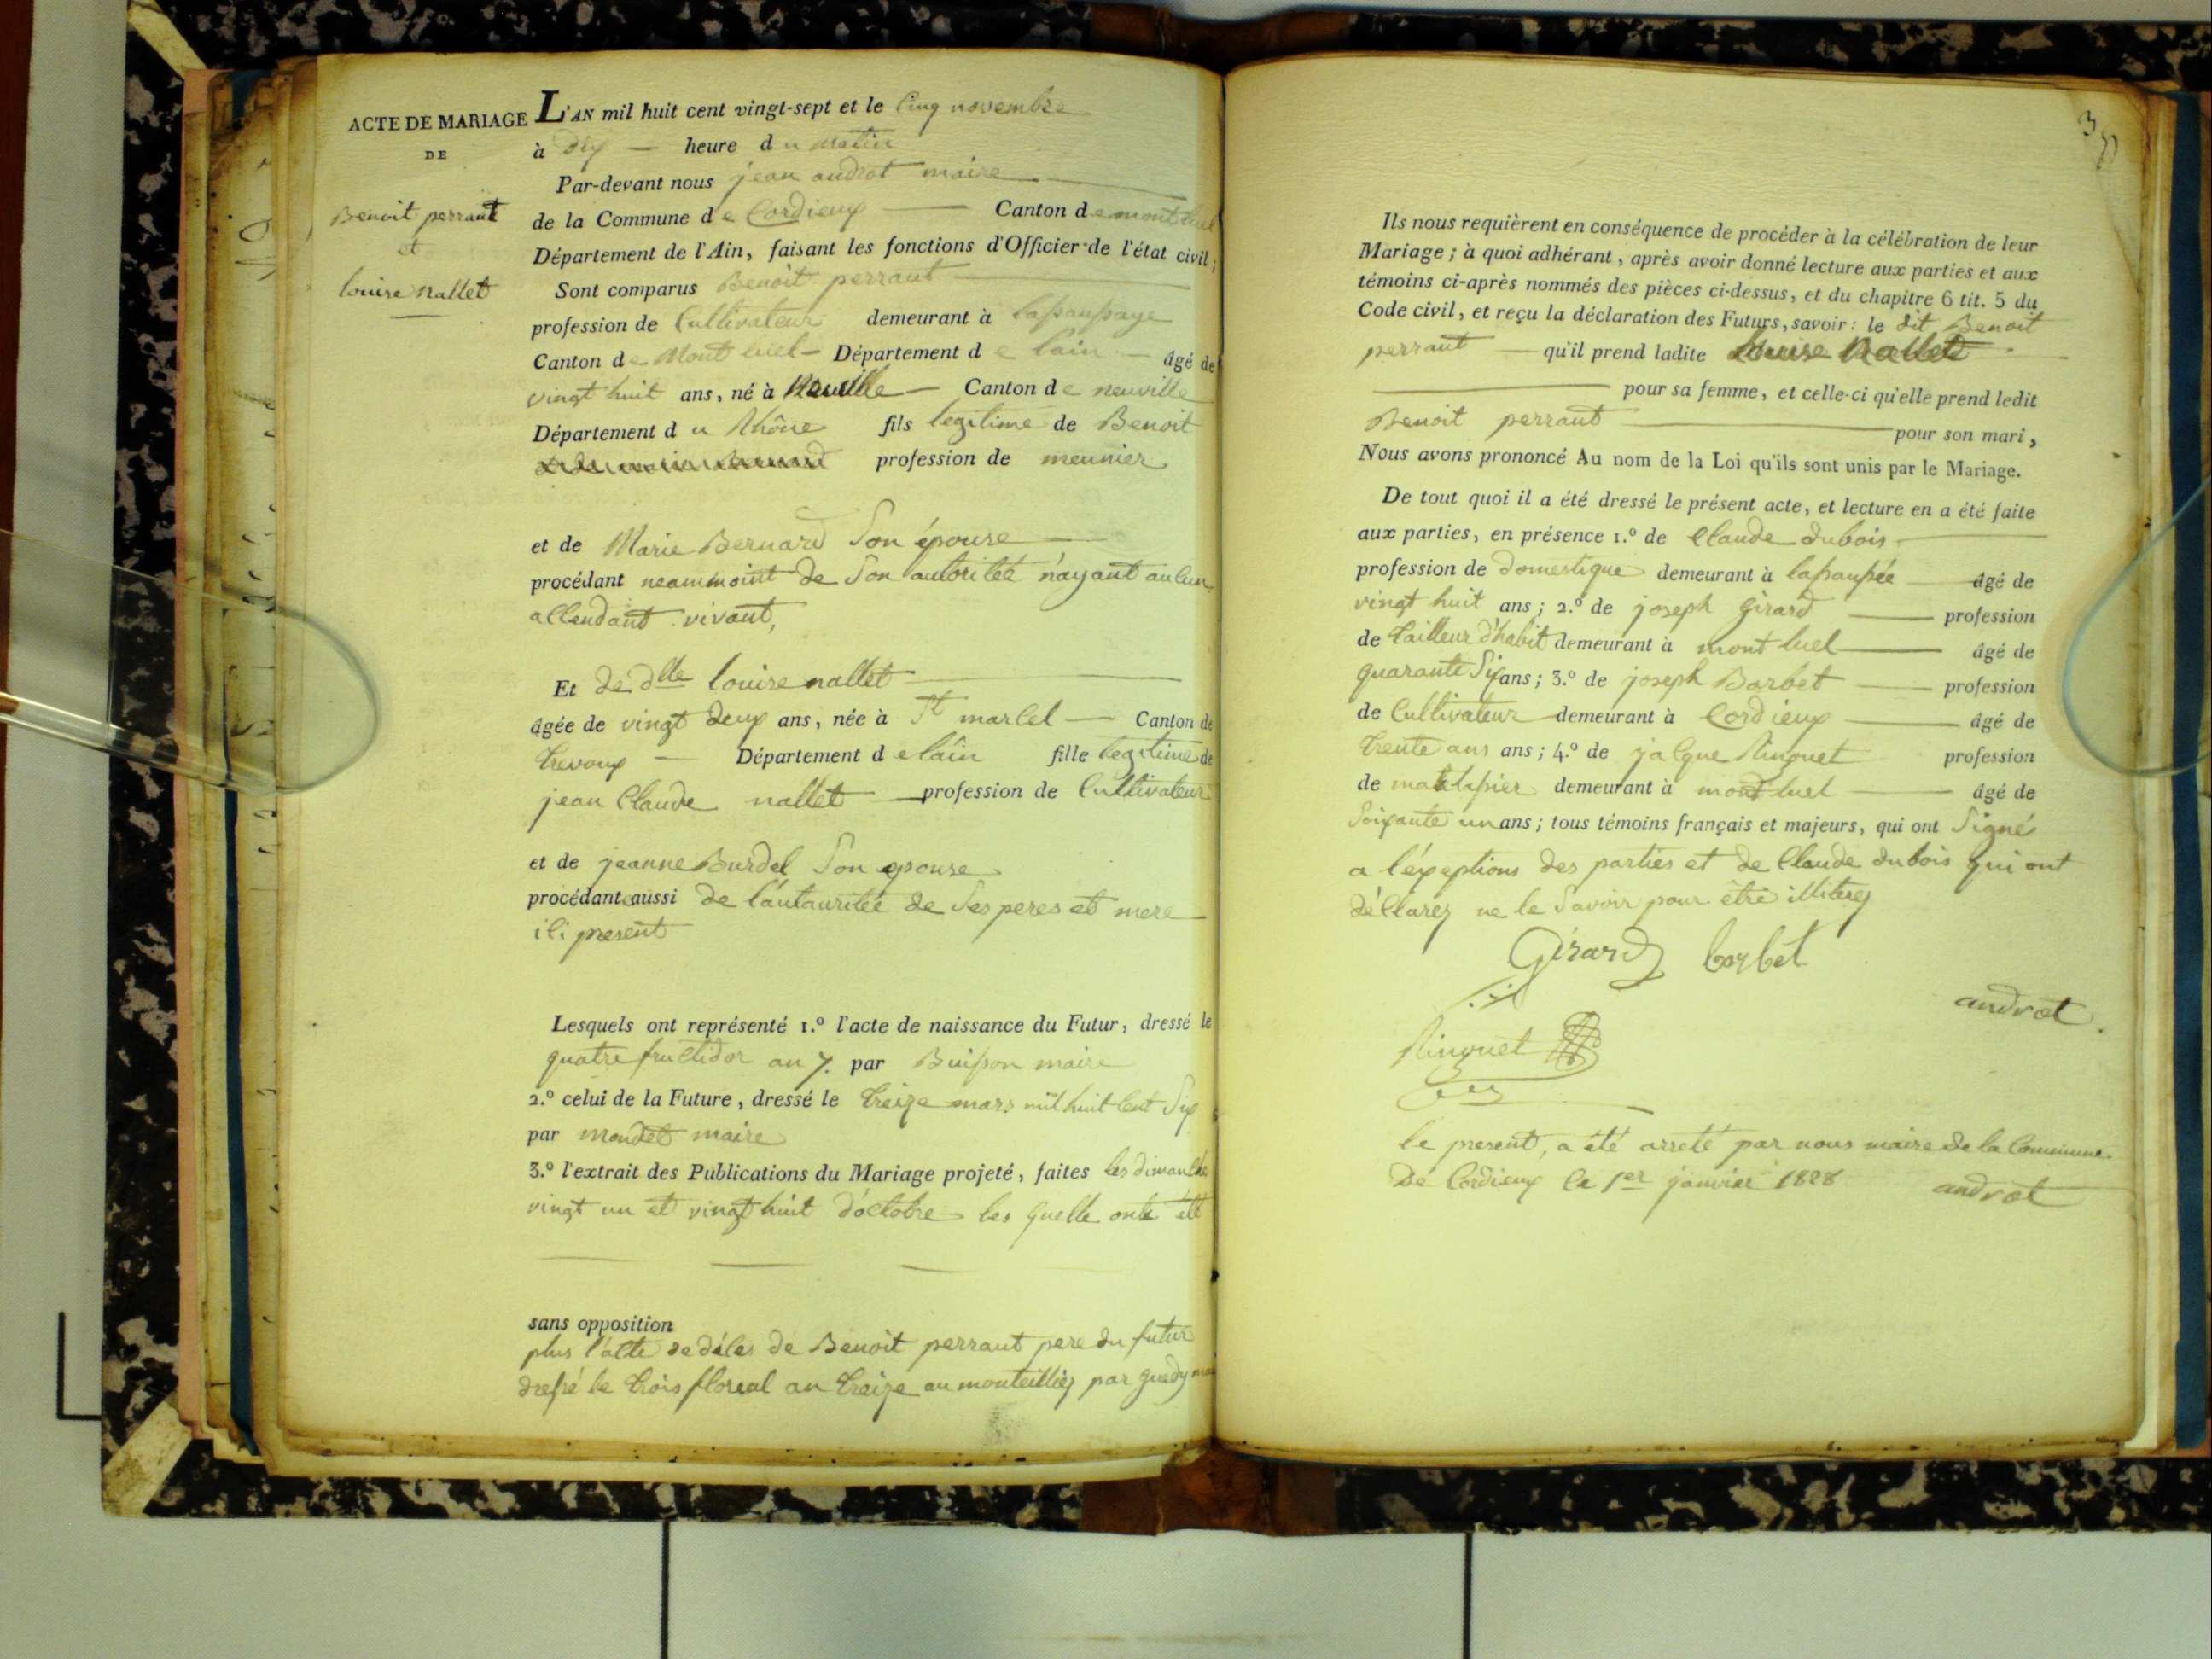 ACTE DE MARIAGE
DE
Benoit perraut
et
louise nallet
L'AN mil huit cent vingt-sept et le Cinq novembre
à dix — heure du matin
Par-devant nous jean androt maire
de la Commune de Cordieux — Canton de montluel
Département de l'Ain, faisant les fonctions d'Officier de l'état civil;
Sont comparus Benoit perraut
profession de Cultivateur demeurant à lapaupaye
Canton de Mont luel — Département de lain — âgé de
vingt huit ans, né à Neuville — Canton de neuville
Département du Rhône fils legitime de Benoit
profession de meunier
et de Marie Bernard Son épouse
procédant neammoint de Son autoritée n'ayant aucun
assendant vivant,
Et de dlle louise nallet
âgée de vingt deux ans, née à St marcel — Canton de
trevoux — Département de lain fille legitime de
jean Claude nallet — profession de Cultivateur
et de jeanne Burdel Son epouse
procédant aussi de l'autauritée de Ses peres et mere
ici present
Lesquels ont représenté 1.º l'acte de naissance du Futur, dressé le
quatre fructidor an 7. par Buisson maire
2.º celui de la Future, dressé le treize mars mil huit Cent Six
par mondet maire
3.º l'extrait des Publications du Mariage projeté, faites les dimanche
vingt un et vingt huit d'octobre les quelle onte été
sans opposition
plus l'acte de déces de Benoit perraut pere du futur
dressé le trois floreal an treize au monteilliez par
3
Ils nous requièrent en conséquence de procéder à la célébration de leur
Mariage; à quoi adhérant, après avoir donné lecture aux parties et aux
témoins ci-après nommés des pièces ci-dessus, et du chapitre 6 tit. 5 du
Code civil, et reçu la déclaration des Futurs, savoir: le dit Benoit
perraut — qu'il prend ladite Louise Nallet
— pour sa femme, et celle-ci qu'elle prend ledit
Benoit perraut — pour son mari,
Nous avons prononcé Au nom de la Loi qu'ils sont unis par le Mariage.
De tout quoi il a été dressé le présent acte, et lecture en a été faite
aux parties, en présence 1.º de Claude dubois
profession de domestique demeurant à lapaupée — âgé de
vingt huit ans; 2.º de joseph Girard — profession
de tailleur d'habit demeurant à mont luel — âgé de
quarante Six ans; 3.º de joseph Barbet — profession
de Cultivateur demeurant à Cordieux — âgé de
trente ans ans; 4.º de jacque Ringuet profession
de demeurant à mont luel — âgé de
Soixante un ans; tous témoins français et majeurs, qui ont Signé
a l'éxeptions des parties et de Claude dubois qui ont
déclarez ne le Savoir pour être illiterez
Girard barbet
androt
Ringuet
le present, a été arreté par nous maire de la Commune
De Cordieux le 1er janvier 1828 androt